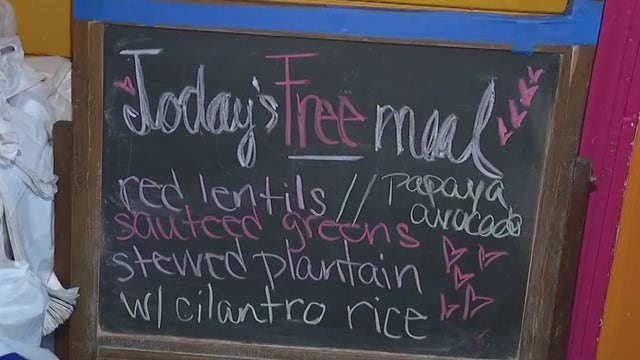 Today's Free meal
red lentils // papaya avocado
sauteed greens
stewed plantain
w/ cilantro rice